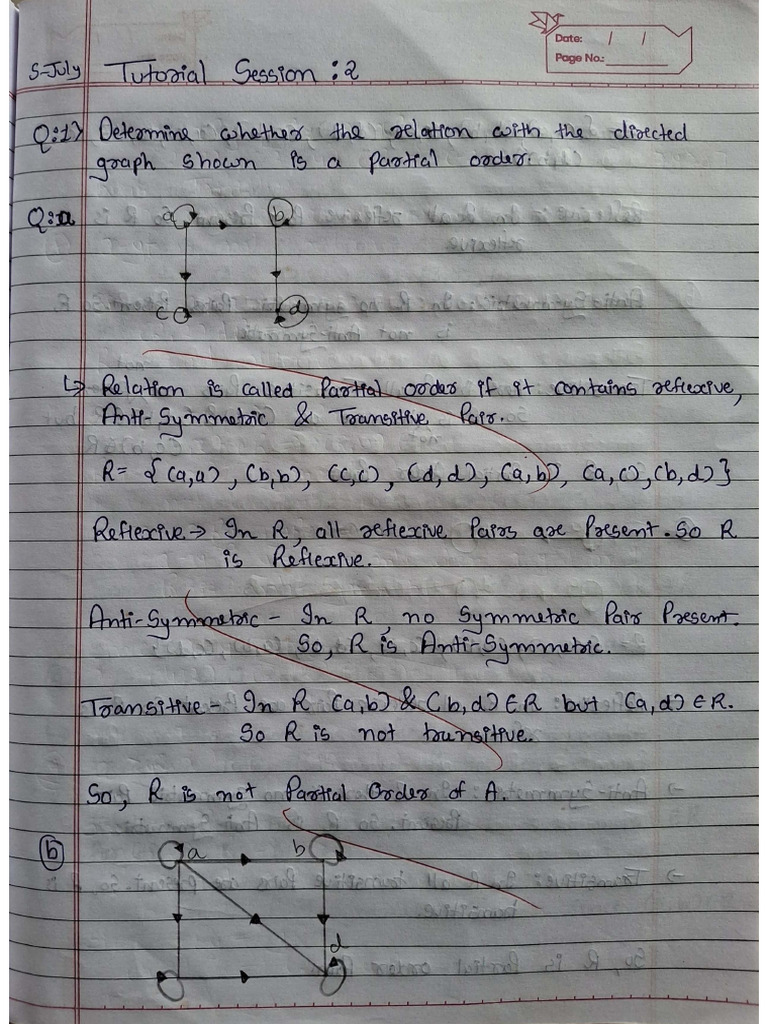 Date: / /
Page No.:
5-July Tutorial Session : 2
Q:1) Determine whether the relation with the directed
graph shown is a Partial order.
Q:a
a b
c d
↳ Relation is called Partial order if it contains reflexive,
Anti-Symmetric & Transitive Pair.
R = {(a,a), (b,b), (c,c), (d,d), (a,b), (a,c), (b,d)}
Reflexive → In R, all reflexive Pairs are Present. So R
is Reflexive.
Anti-Symmetric - In R, no Symmetric Pair Present.
So, R is Anti-Symmetric.
Transitive - In R (a,b) & (b,d) ∈ R but (a,d) ∈ R.
So R is not transitive.
So, R is not Partial Order of A.
b
a b
d